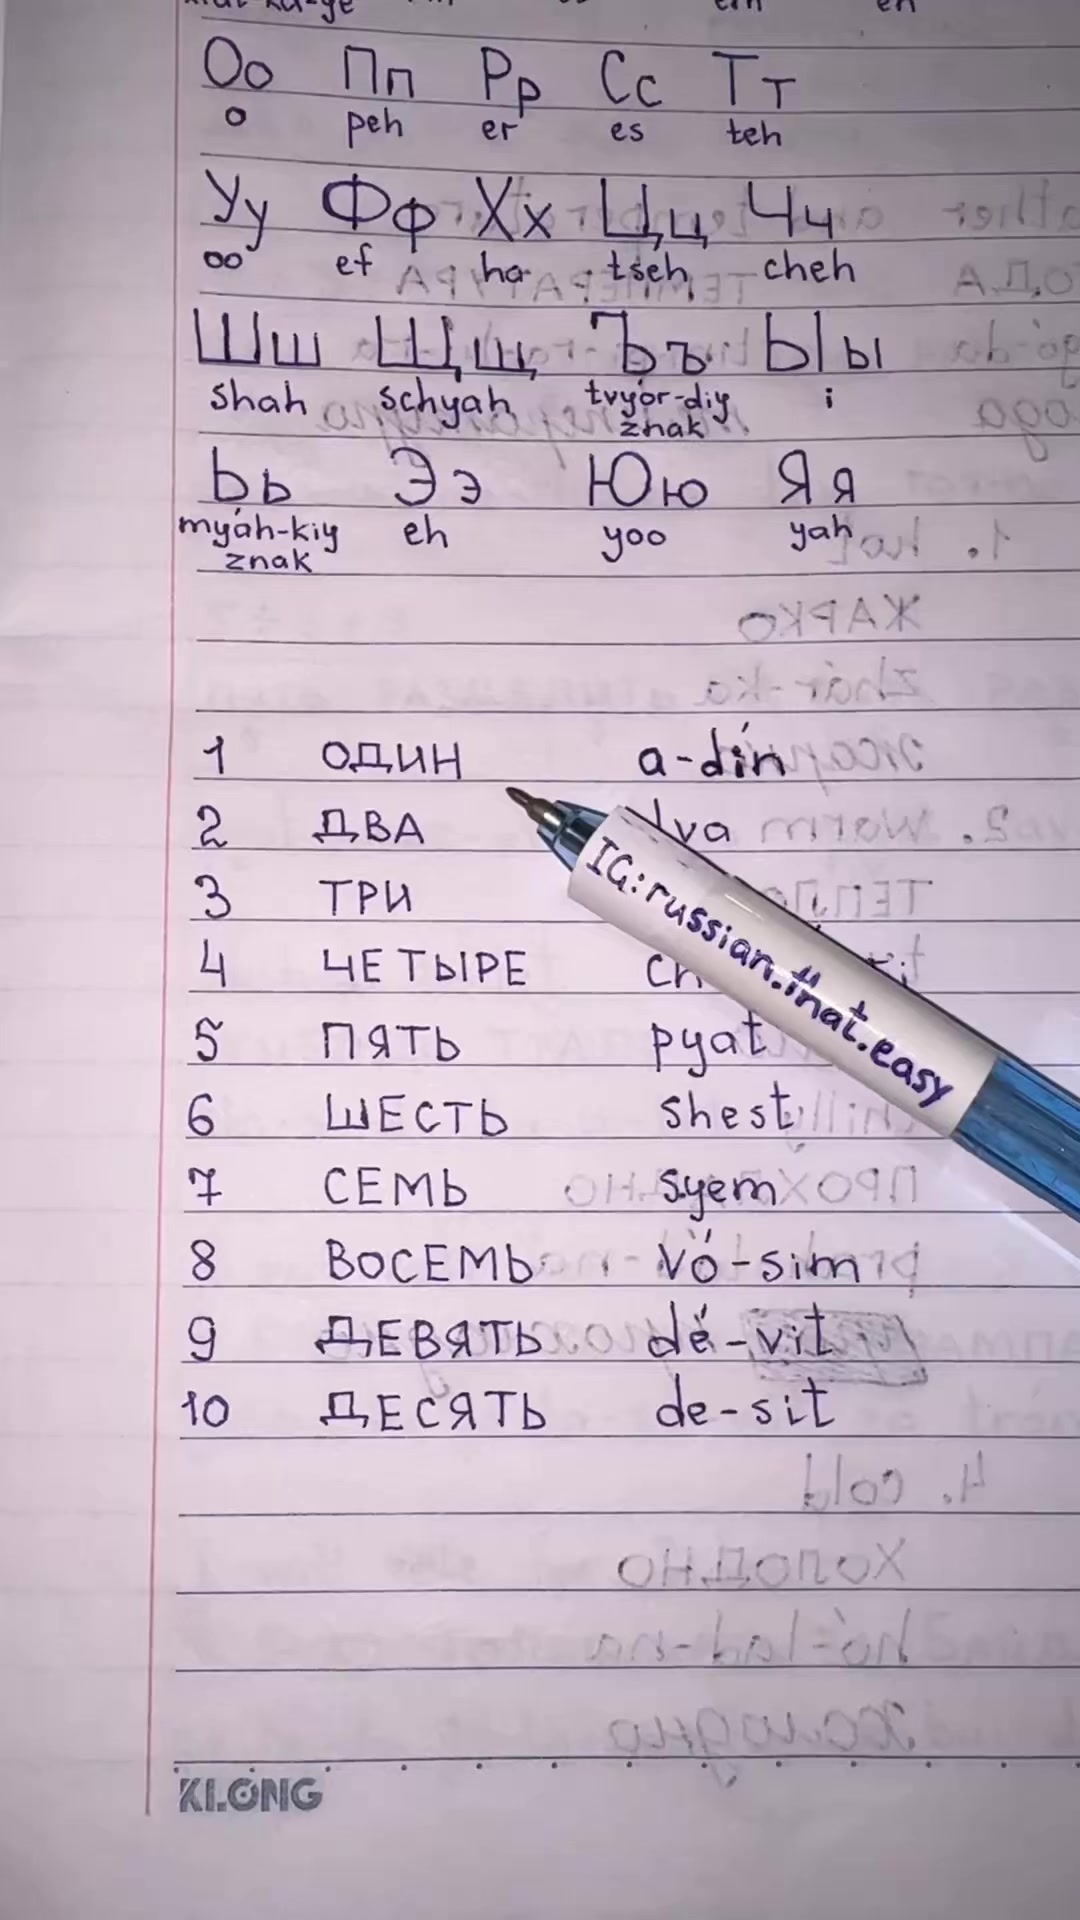 Оо Пп Рр Сс Тт
о peh er es teh
Уу Фф Хх Цц Чч
oo ef ha tseh cheh
Шш Щщ Ъъ Ыы
shah schyah tvyór-diy i
znak
Ьь Ээ Юю Яя
myáh-kiy eh yoo yah
znak
1 ОДИН a-dín
2 ДВА dva
3 ТРИ
4 ЧЕТЫРЕ
5 ПЯТЬ pyat
6 ШЕСТЬ shest
7 СЕМЬ syem
8 ВОСЕМЬ vó-sim
9 ДЕВЯТЬ dé-vit
10 ДЕСЯТЬ de-sit
IG: russian.that.easy
KLONG